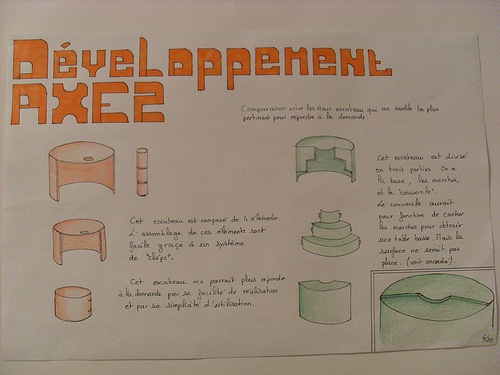 Développement
AXE2
Comparaison entre les deux escabeau qui me semble les plus
pertinent pour répondre à la demande.
Cet escabeau est composé de 4 éléments.
L'assemblage de ces éléments sont
facile grâce à un système
de "clips".
Cet escabeau me parrait plus répondre
à la demande par sa facilité de réalisation
et par sa simplicité d'utilisation.
Cet escabeau est divisé
en trois parties. On a
la base, les marches,
et le "couvercle".
Le couvercle aurait
pour fonction de cacher
les marches pour obtenir
une table basse. Mais la
surface ne serait pas
plane. (voir encadré).